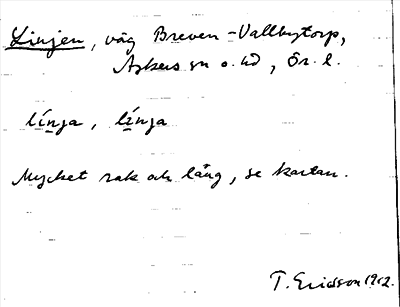 Linjen, väg Breven-Vallbytorp,
Askers sn o. hd, Ör. l.
línja, línja
Mycket rak och lång, se kartan.
T. Ericsson 1912.